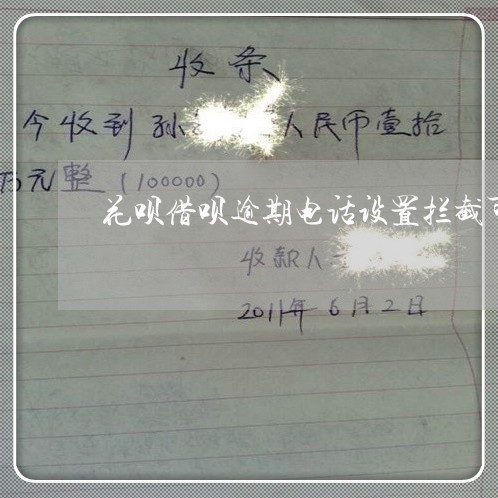 收条
今收到孙 人民币壹拾
万元整（100000）
花呗借呗逾期电话设置拦截可
收款人
2011年6月2日